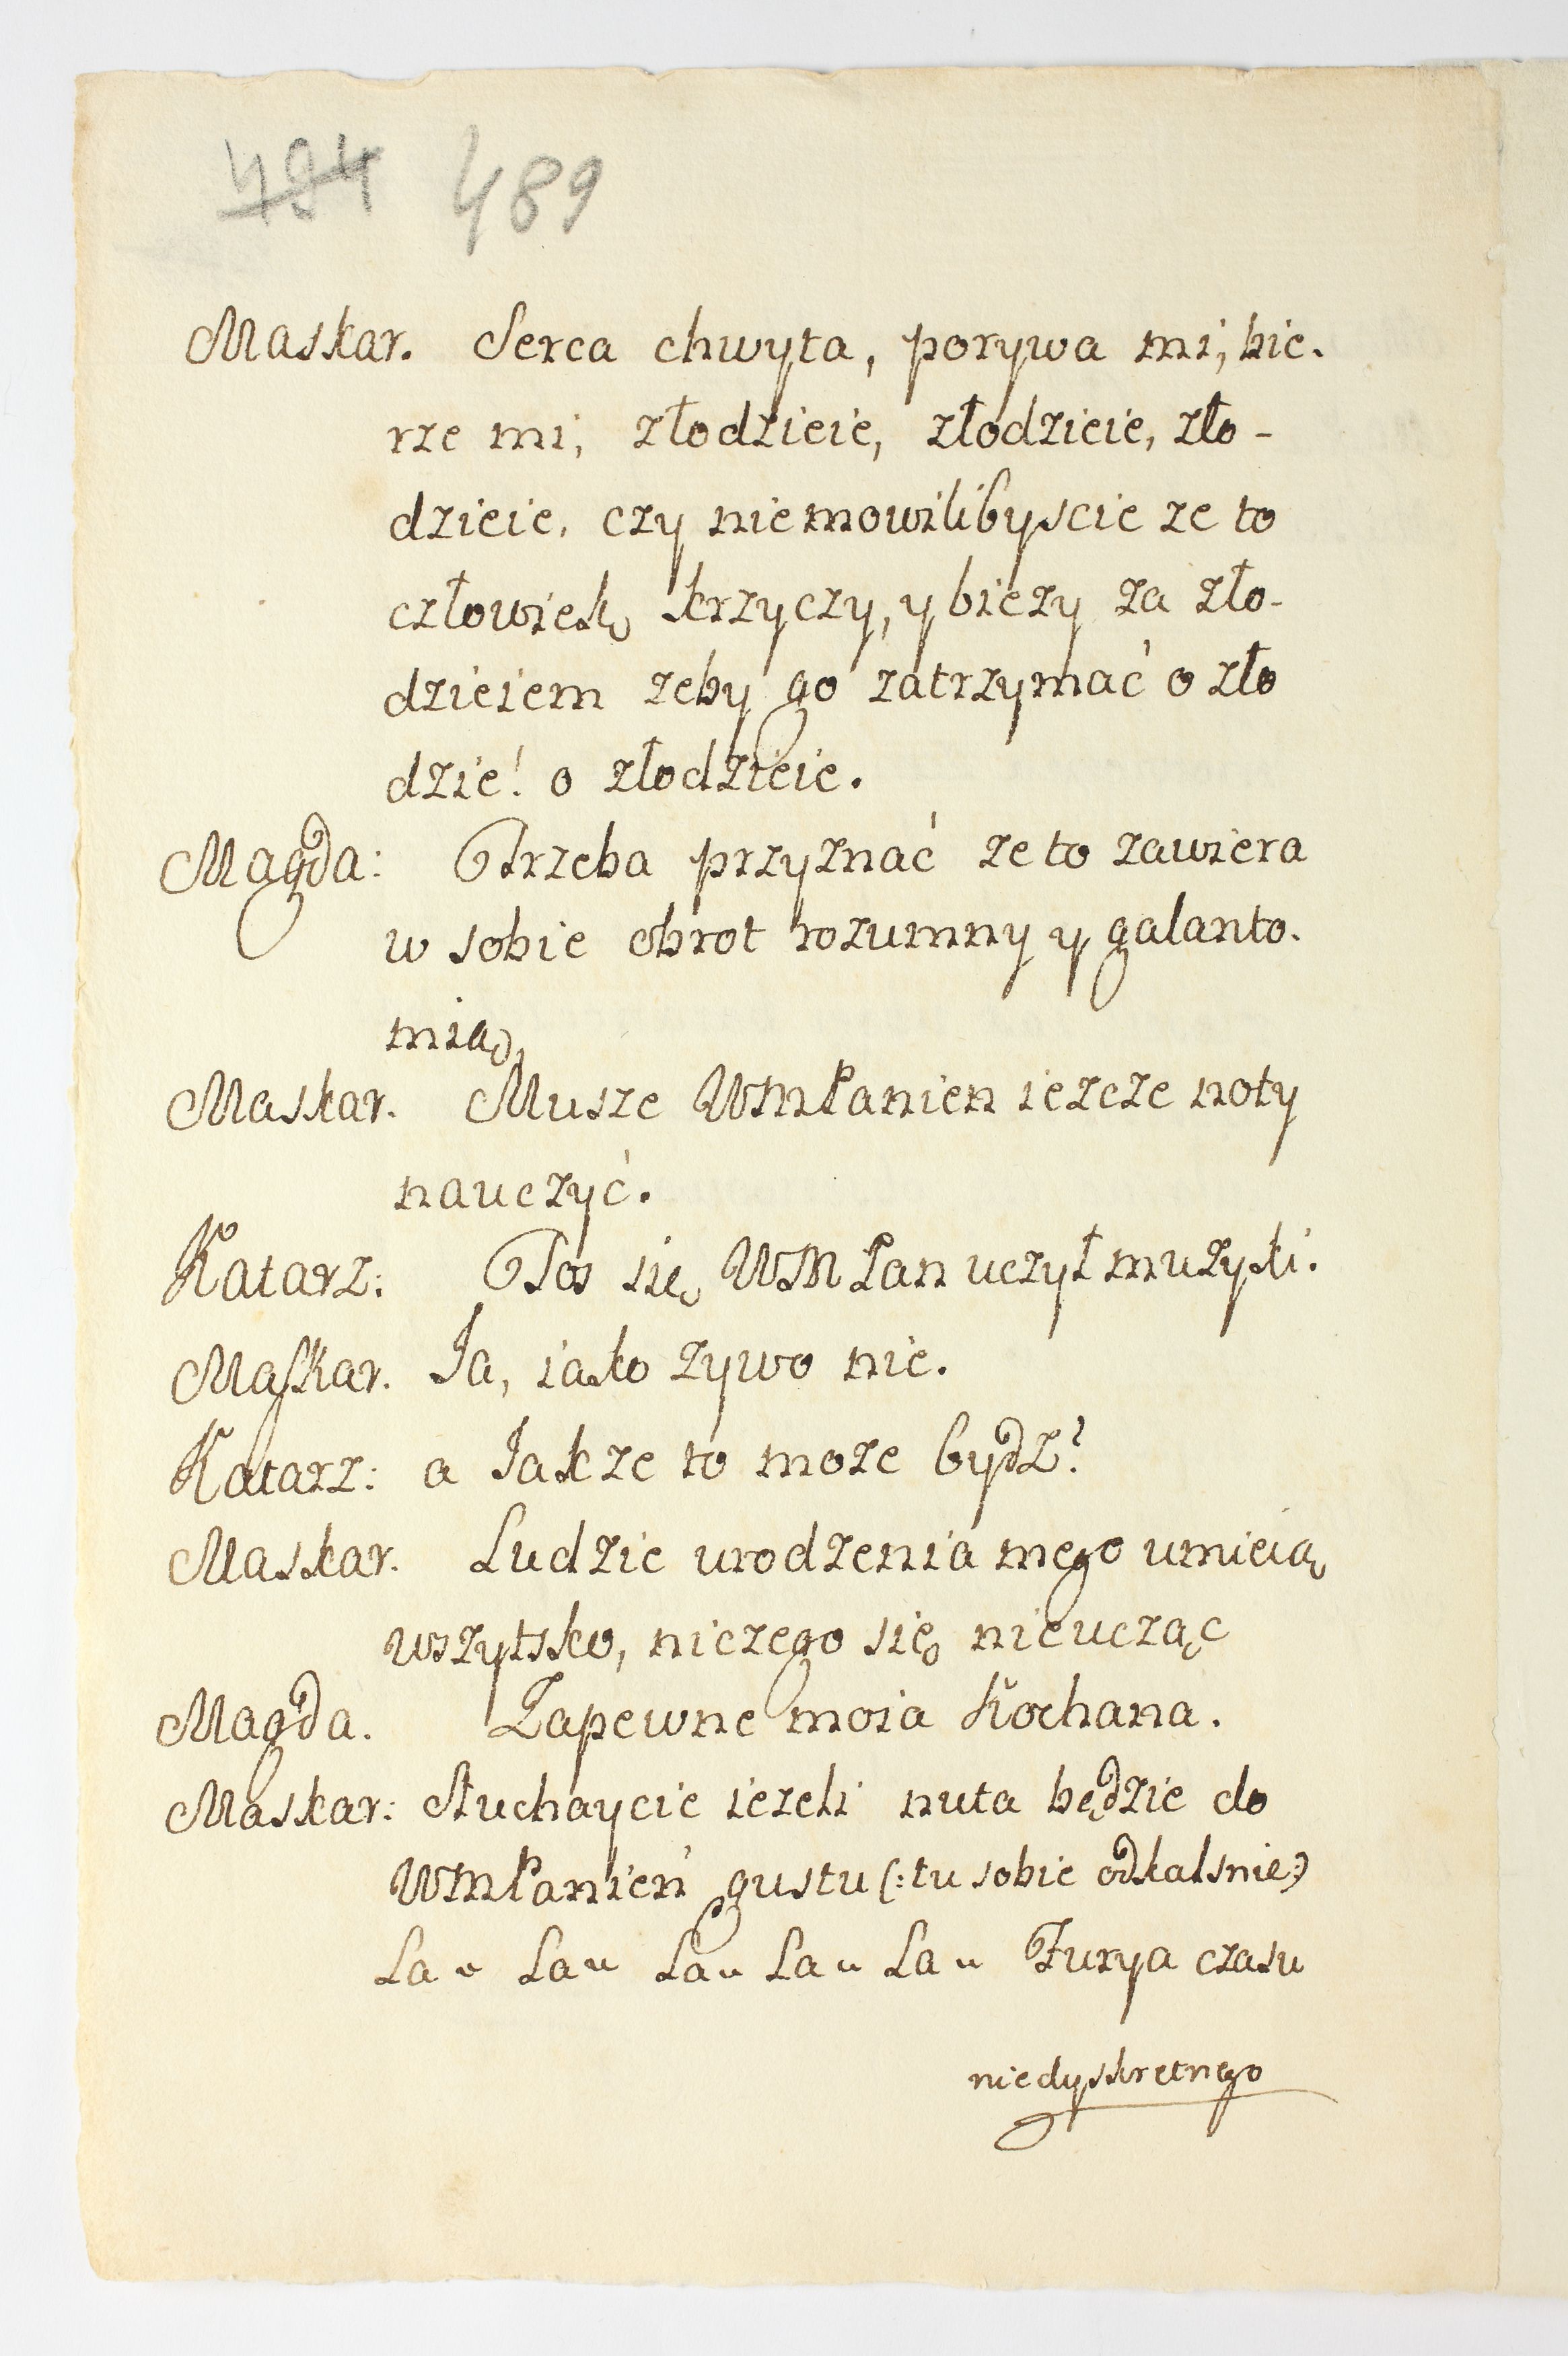 494 489
Maskar. Serca chwyta, porywa mi, bie.
rze mi, złodzieie, złodzieie, zło-
dzieie, czy niemowilibyscie ze to
człowiek, krzyczy, y biezy za zło-
dzieiem zeby go zatrzymać o zło
dzie! o złodzieie.
Magda: Trzeba przyznać ze to zawiera
w sobie obrot rozumny y galanto.
mią,
Maskar. Musze WMPanien iezcze noty
nauczyć.
Katarz: Tos się WMPan uczył muzyki.
Maskar. Ja, iako zywo nie.
Katarz: a Jakze to moze bydz?
Maskar. Ludzie urodzenia mego umieią
wszytsko, niczego się nieucząc
Magda. Zapewne moia Kochana.
Maskar: Słuchaycie iezeli nuta będzie do
WMPanień gustu (: tu sobie odkalsnie:)
La " La " La " La " La " Furya czasu
niedyskretnego